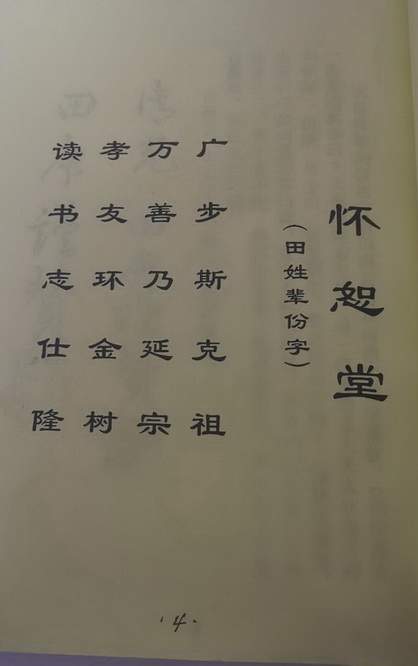 怀恕堂
(田姓辈份字)
广步斯克祖
万善乃延宗
孝友环金树
读书志仕隆
·4·